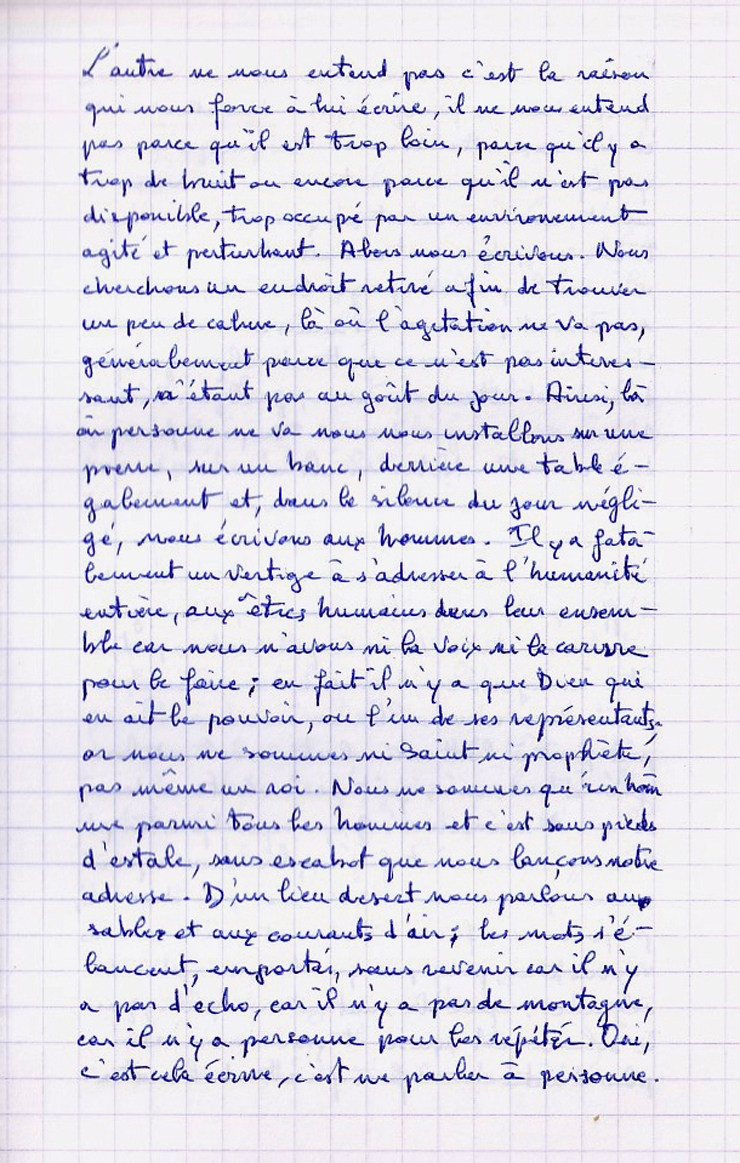 L'autre ne nous entend pas c'est la raison
qui nous force à lui écrire, il ne nous entend
pas parce qu'il est trop loin, parce qu'il y a
trop de bruit ou encore parce qu'il n'est pas
disponible, trop occupé par un environement
agité et perturbant. Alors nous écrivons. Nous
cherchons un endroit retiré afin de trouver
un peu de calme, là où l'agitation ne va pas,
généralement parce que ce n'est pas interes-
sant, n'étant pas au goût du jour. Ainsi, là
où personne ne va nous nous installons sur une
pierre, sur un banc, derrière une table é-
galement et, dans le silence du jour négli-
gé, nous écrivons aux hommes. Il y a fata-
lement un vertige à s'adresser à l'humanité
entière, aux êtres humains dans leur ensem-
ble car nous n'avons ni la voix ni la carrure
pour le faire ; en fait il n'y a que Dieu qui
en ait le pouvoir, ou l'un de ses représentants.
or nous ne sommes ni saint ni prophète,
pas même un roi. Nous ne sommes qu'un hom
me parmi tous les hommes et c'est sans pieds
d'estale, sans escabot que nous lançons notre
adresse. D'un lieu desert nous parlons aux
sables et aux courants d'air ; les mots s'é-
lancent, emportés, sans revenir car il n'y
a pas d'écho, car il n'y a pas de montagne,
car il n'y a personne pour les répéter. Oui,
c'est cela écrire, c'est ne parler à personne.